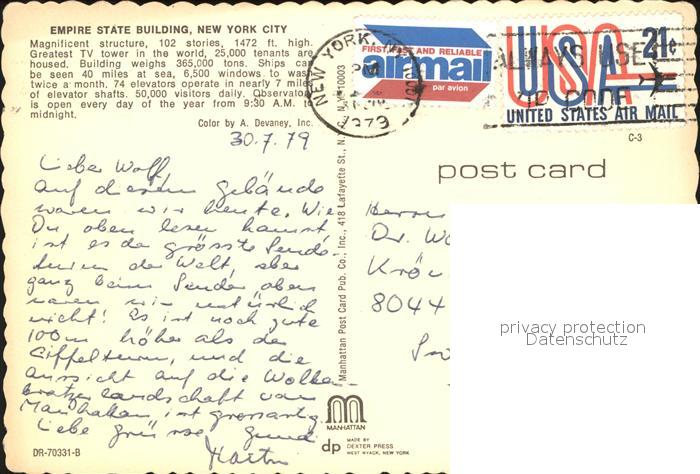 EMPIRE STATE BUILDING, NEW YORK CITY
Magnificent structure, 102 stories, 1472 ft. high.
Greatest TV tower in the world, 25,000 tenants are
housed. Building weighs 365,000 tons. Ships can
be seen 40 miles at sea, 6,500 windows to wash
twice a month. 74 elevators operate in nearly 7 miles
of elevator shafts. 50,000 visitors daily. Observatory
is open every day of the year from 9:30 A.M. to
midnight.
Color by A. Devaney, Inc.
30.7.79
Lieber Wolf,
auf diesem Gebäude
waren wir heute. Wie
Du oben lesen kannst
ist es der grösste Sende-
turm der Welt, aber
ganz beim Sender oben
waren wir natürlich
nicht! Es ist noch gute
100m höher als der
Eiffelturm, und die
Aussicht auf die Wolken-
kratzerlandschaft von
Manhattan ist grossartig.
Liebe Grüsse
Martin
DR-70331-B
Manhattan Post Card Pub. Co., Inc., 418 Lafayette St., N.Y. 10003
MANHATTAN
dp
MADE BY
DEXTER PRESS
WEST NYACK, NEW YORK
NEW YORK, N.Y.
PM
1979
FIRST, FAST AND RELIABLE
airmail
par avion
ALWAYS USE
ZIP CODE
USA 21¢
UNITED STATES AIR MAIL
C-3
post card
Herrn
Dr.
8044
privacy protection
Datenschutz